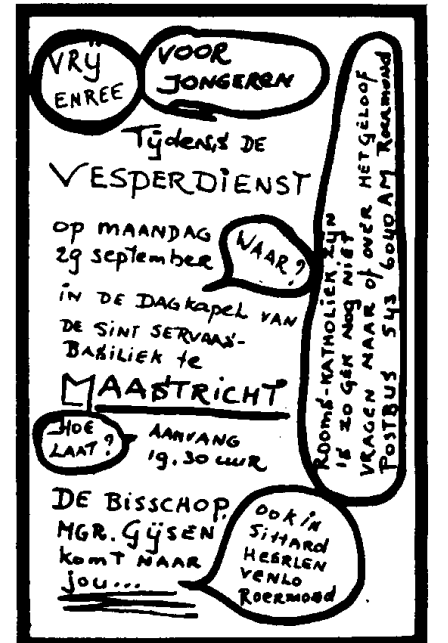 VRIJ
ENREE
VOOR
JONGEREN
Tijdens DE
VESPERDIENST
OP MAANDAG
29 september
WAAR?
IN DE DAGKAPEL VAN
DE SINT SERVAAS-
BASILIEK te
MAASTRICHT
HOE
LAAT?
AANVANG
19.30 uur
DE BISSCHOP,
MGR. GIJSEN
komT NAAR
jou...
OOK IN
SITTARD
HEERLEN
VENLO
ROERMOND
ROOMS-KATHOLIEK ZIJN
IS ZO GEK NOG NIET
VRAGEN NAAR OF OVER HET GELOOF
POSTBUS 543 6040 AM ROERMOND